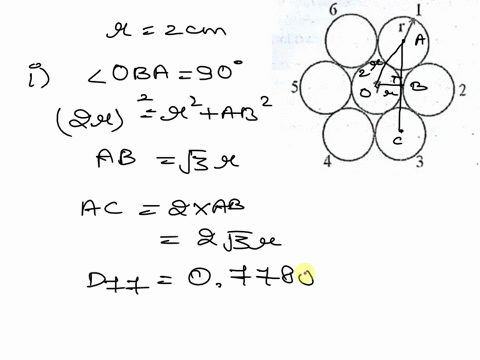 r = 2 cm
i) ∠OBA = 90°
(2r)² = r² + AB²
AB = √3 r
AC = 2 × AB
= 2√3 r
D77 = 0.7789
6
1
r
A
2r
5
O
r
B
2
C
4
3